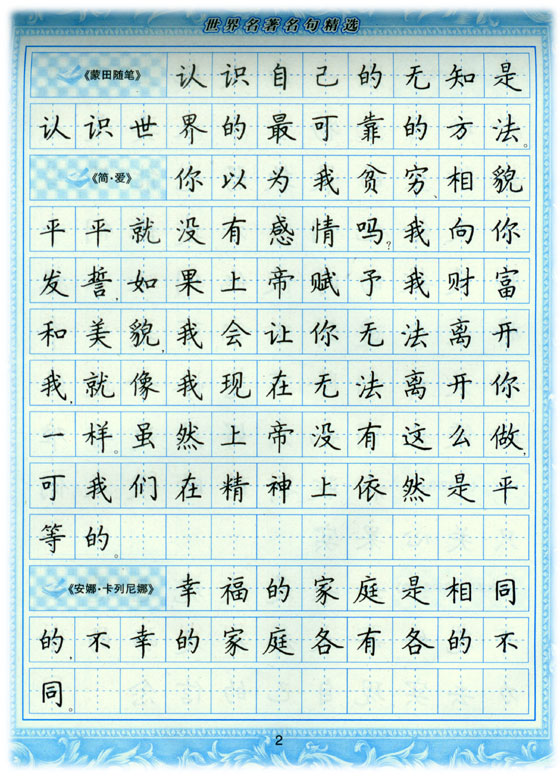 世界名著名句精选
《蒙田随笔》 认识自己的无知是
认识世界的最可靠的方法。
《简·爱》 你以为我贫穷、相貌
平平就没有感情吗?我向你
发誓,如果上帝赋予我财富
和美貌,我会让你无法离开
我,就像我现在无法离开你
一样。虽然上帝没有这么做,
可我们在精神上依然是平
等的。
《安娜·卡列尼娜》 幸福的家庭是相同
的,不幸的家庭各有各的不
同。
2